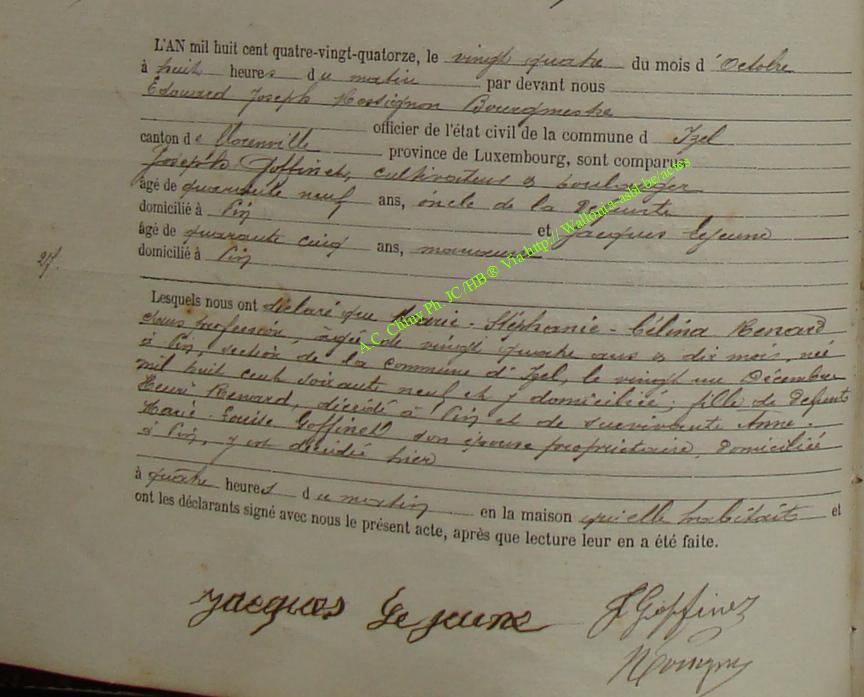 L'AN mil huit cent quatre-vingt-quatorze, le vingt quatre du mois d'Octobre
à huit heures du matin par devant nous
Edouard Joseph Hossignon Bourgmestre
officier de l'état civil de la commune d Izel
canton de Florenville province de Luxembourg, sont comparus
Joseph Goffinet, cultivateur & boulanger
âgé de quarante neuf ans, oncle de la Défunte
domicilié à Pin et Jacques Lejeune
âgé de quarante cinq ans, manœuvre
domicilié à Pin
Lesquels nous ont déclaré que Marie-Stéphanie-Célina Renard
sans profession, agée de vingt quatre ans & dix mois, née
à Pin, section de la commune d'Izel, le vingt un Décembre
mil huit cent soixante neuf et y domiciliée; fille de Défunt
Henri Renard, décédé à Pin et de survivante Anne-
Marie-Louise Goffinet son épouse propriétaire, domiciliée
à Pin, y est décédée hier
à quatre heures du matin en la maison qu'elle habitait et
ont les déclarants signé avec nous le présent acte, après que lecture leur en a été faite.
Jacques Lejeune J Goffinet
A.C. Chiny Ph. JC/HB ® Via http://Wallonia-asbl.be/actes